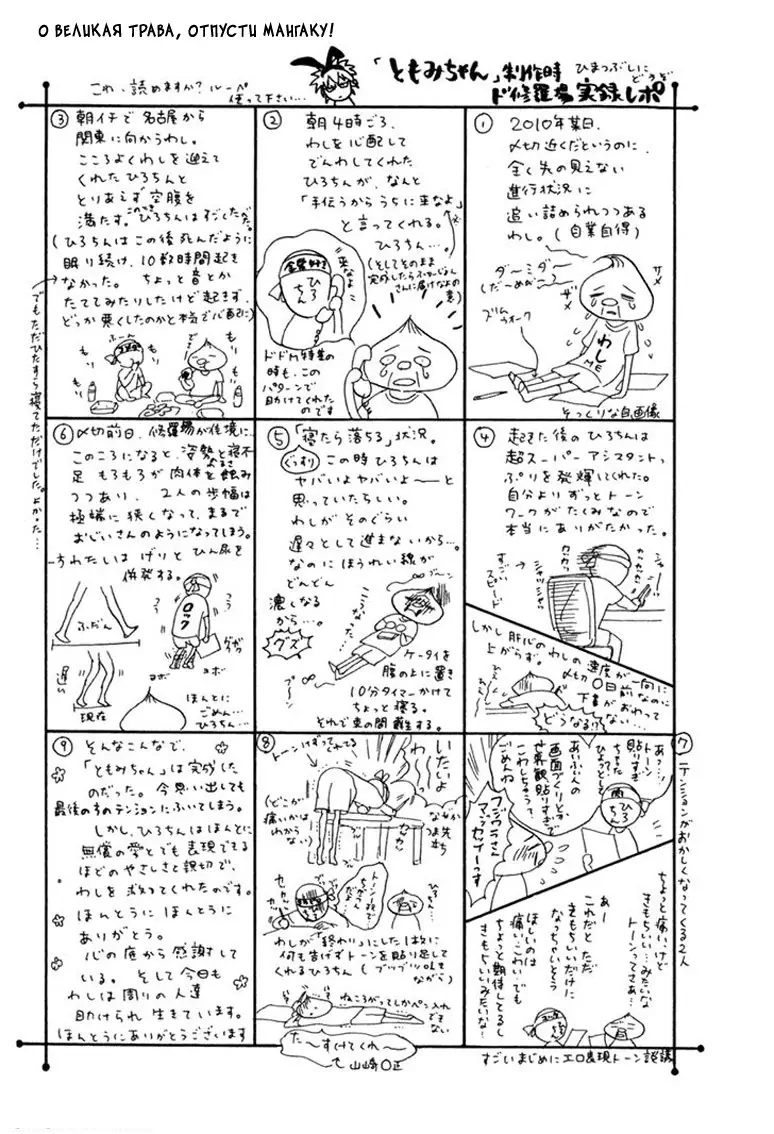 О ВЕЛИКАЯ ТРАВА, ОТПУСТИ МАНГАКУ!
「ともみちゃん」制作時
ひまつぶしに
どうぞ
ド修羅場実録レポ
これ、読めますか?ルーペ
使って下さい…
①
2010年某日、
〆切近くだというのに
全く先の見えない
進行状況に
追い詰められつつある
わし。(自業自得)
ダーミダー
(だーめだー)
ザメ
ザメ
わし
ME
そっくりな自画像
②
朝4時ごろ、
わしを心配して
でんわしてくれた
ひろちんが、なんと
「手伝うからうちに来なよ」
と言ってくれる。
ひろちん…。
(そしてそのまま
完成したら
さんに届けなよの
意)
来なよ
ひろちん
ドドM特集の
時も、この
パターンで
助けてくれた
のです
③
朝イチで名古屋から
関東に向かうわし。
こころよくわしを迎えて
くれたひろちんと
とりあえず空腹を
満たす。
ひろちんはすごくただ
(ひろちんはこの後死んだように
眠り続け、10数時間起き
なかった。ちょっと音とか
たててみたりしたけど起きず、
どっか悪くしたのかと本気で心配に)
でもただひたすら寝てただけでした。よかった…
ふーん
もい
もい
④
起きた後のひろちんは
超スーパーアシスタントっ
ぷりを発揮してくれた。
自分よりずっとトーン
ワークがたくみなので
本当にありがたかった。
すごい
スピード
カッカッカッ
シャッシャッ
しかし肝心のわしの速度が一向に
上がらず。
〆切〇日前なのに
下書がおわって
ない…
どうなる!?
⑤
「寝たら落ちる」状況。
ぐっすり
この時ひろちんは
ヤバいよヤバいよ〜〜と
思っていたらしい。
わしがそのぐらい
遅々として進まないから…。
なのにほうれい線が
どんどん
濃くなる
から…。
グズ
ケータイを
腹の上に置き
10分タイマーかけて
ちょっと寝る。
それで束の間蘇生する。
⑥
〆切前日、修羅場が佳境に…
このころになると、姿勢と寝不
足もろもろが肉体を蝕み
つつあり、2人の歩幅は
極端に狭くなって、まるで
おじいさんのようになってしまう。
げりとひん尿を
併発する。
ふだん
遅い
現在
ロック
ヨボ
ヨボ
ほんとに
ごめん…
ひろちん…
⑦
テンションがおかしくなってくる2人
あ?…
トーン
貼りすぎ
ちゃった
ひょっとして
肉
ひろちん
あいぶんの
画面づくりとか
世界観貼りすぎで
こわしちゃうって
ごめんね
フジワラさん
マジセツイーっす
ちょっと痛いけど
きもちいい…みたいな
トーンってさあ…
あー
これだとただ
きもちいいだけに
なっちゃいそう
ほしいのは
痛いこわいでも
ちょっと期待してるし
きもちいいみたいな…
すごいまじめにエロ表現トーン談議
⑧
トーンけずってくれてる
いたいよ
わ
(どこが
痛いかは
わから
ない)
なぜか
つま先
立ち
ひろちん…
わしが「終わり」にした1枚に
何も告げずトーンを貼り足して
くれるひろちん(ブツブツ
ながら)
ねころがってしかペン入れ
できない
た〜すけてくれ〜
山崎〇正
⑨
そんなこんなで、
「ともみちゃん」は完成した
のだった。今思い出しても
最後の方のテンションにふいてしまう。
しかし、ひろちんはほんとに
無償の愛とでも表現できる
ほどのやさしさと親切で、
わしを救ってくれたのです。
ほんとうにほんとうに
ありがとう。
心の底から感謝して
いる。そして今日も
わしは周りの人達に
助けられ生きています。
ほんとうにありがとうございます